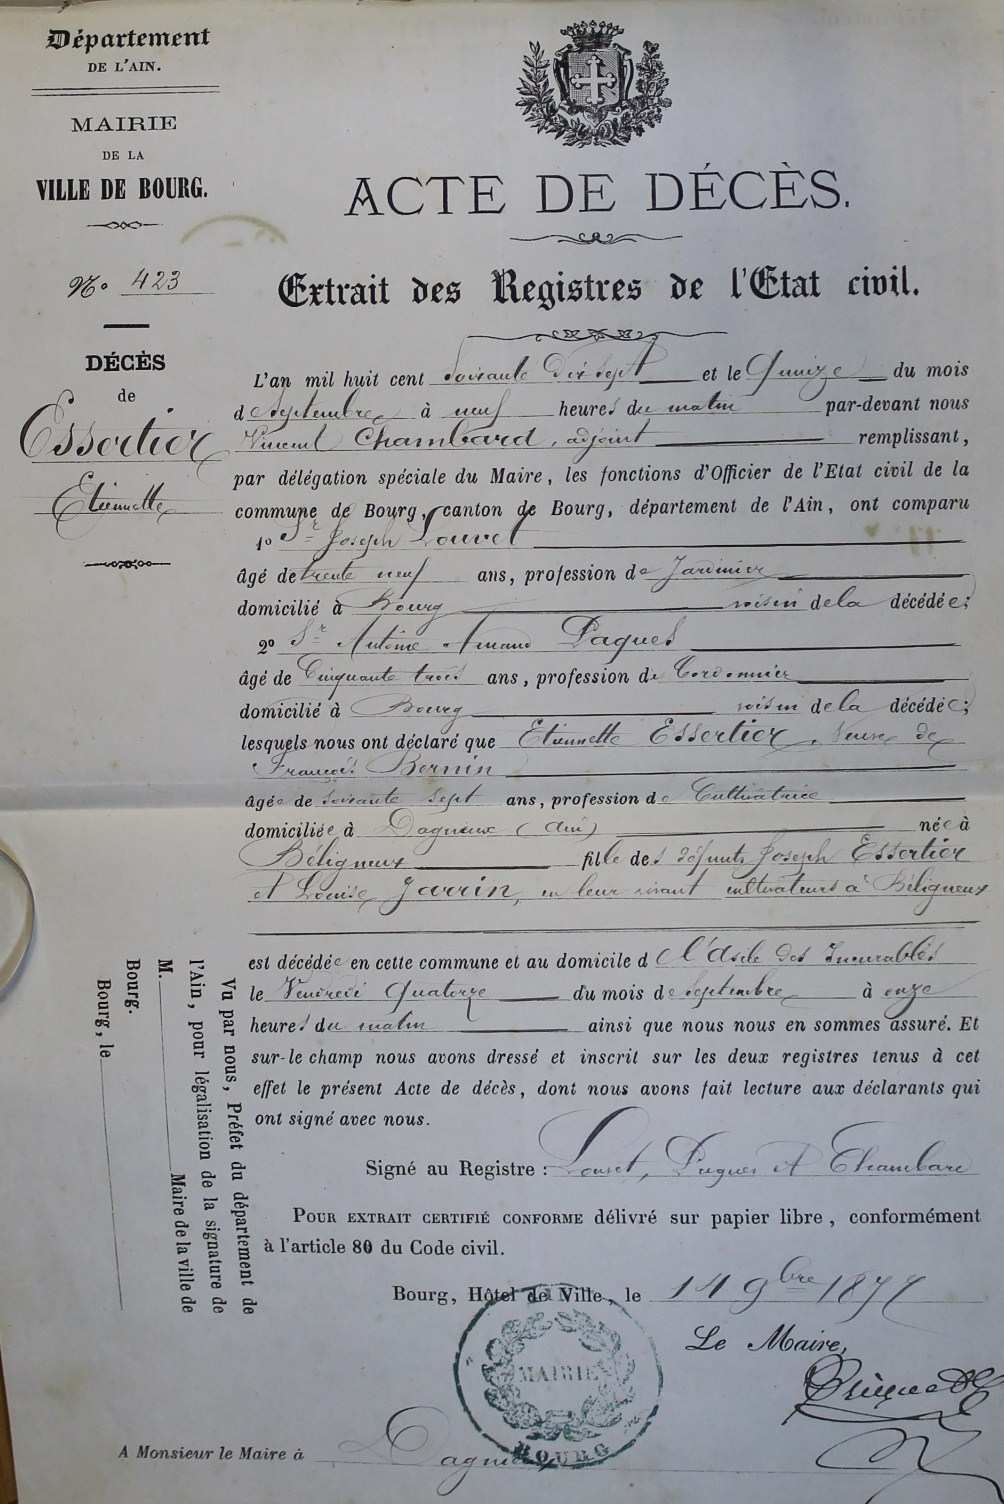 Département
DE L'AIN.
MAIRIE
DE LA
VILLE DE BOURG.
No 423
DÉCÈS
de
Essertier
Etiennette
ACTE DE DÉCÈS.
Extrait des Registres de l'Etat civil.
L'an mil huit cent Soixante Dix sept et le Quinze du mois
de Septembre à neuf heures du matin par-devant nous
Vincent Chambard, adjoint remplissant,
par délégation spéciale du Maire, les fonctions d'Officier de l'Etat civil de la
commune de Bourg, canton de Bourg, département de l'Ain, ont comparu
1o Sr Joseph Louvet
âgé de trente neuf ans, profession de Jardinier
domicilié à Bourg voisin de la décédée;
2o Sr Antoine Armand Paques
âgé de Cinquante trois ans, profession de Cordonnier
domicilié à Bourg voisin de la décédée;
lesquels nous ont déclaré que Etiennette Essertier, Veuve de
François Bernin
âgée de soixante sept ans, profession de Cultivatrice
domiciliée à Dagneux (Ain) née à
Béligneux fille des défunts Joseph Essertier
et Louise Jarrin, en leur vivant cultivateurs à Béligneux
est décédée en cette commune et au domicile d l'Asile des Incurables
le Vendredi Quatorze du mois de septembre à onze
heures du matin ainsi que nous nous en sommes assuré. Et
sur-le champ nous avons dressé et inscrit sur les deux registres tenus à cet
effet le présent Acte de décès, dont nous avons fait lecture aux déclarants qui
ont signé avec nous.
Signé au Registre : Louvet, Paques et Chambard
POUR EXTRAIT CERTIFIÉ CONFORME délivré sur papier libre, conformément
à l'article 80 du Code civil.
Bourg, Hôtel de Ville, le 14 9bre 1877
Le Maire,
MAIRIE
BOURG
A Monsieur le Maire à Dagneux
Vu par nous, Préfet du département de
l'Ain, pour légalisation de la signature de
M. Maire de la ville de
Bourg.
Bourg, le